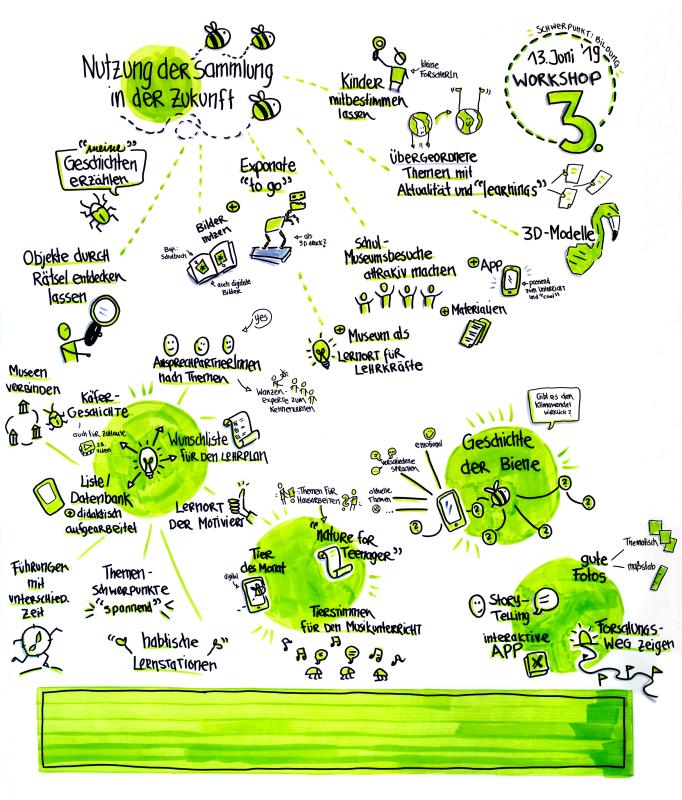 SCHWERPUNKT: BILDUNG
13. Juni '19
WORKSHOP
3.
Nutzung der Sammlung
in der Zukunft
Kinder
mitbestimmen
lassen
kleine
ForscherIn
"meine"
Geschichten
erzählen
Exponate
"to go"
Übergeordnete
Themen mit
Aktualität und "learnings"
3D-Modelle
Bilder
nutzen
Bsp.:
Schulbuch
auch digitale
Bilder
als
3D druck?
Objekte durch
Rätsel entdecken
lassen
Schul-
Museumsbesuche
attrakiv machen
App
passend
zum Unterricht
und "cool"
Materialien
Museum als
Lernort für
Lehrkräfte
yes
AnsprechpartnerInnen
nach Themen
Wanzen-
experte zum
Kennenlernen
Museen
verbinden
Käfer-
Geschichte
auch für zuhause
z.B.
Video
Wunschliste
für den Lehrplan
Liste/
Datenbank
didaktisch
aufgearbeitet
Lernort
der Motiviert
Führungen
mit
unterschied.
Zeit
Themen-
schwerpunkte
"spannend"
habtische
Lernstationen
Gibt es den
Klimawandel
wirklich?
Geschichte
der Biene
emotional
verschiedene
Sprachen
aktuelle
Themen
Themen für
Hausarbeiten
"nature for
Teenager"
Tier
des Monat
digital
Tierstimmen
für den Musikunterricht
gute
Fotos
Thematisch
maßstab
Story-
Telling
interaktive
APP
Forschungs-
weg zeigen